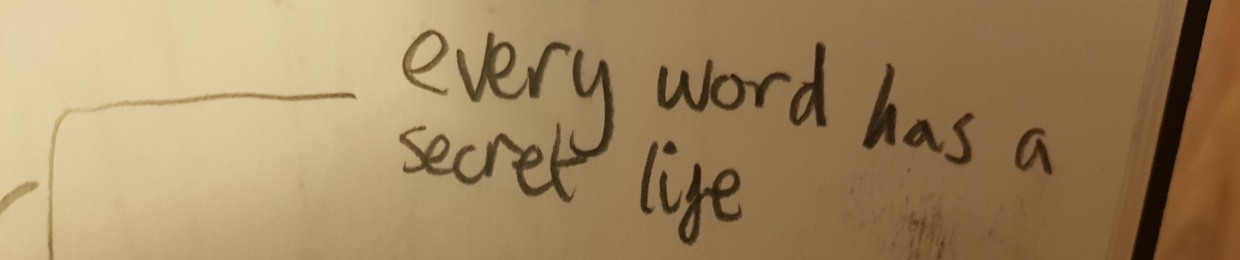 every word has a
secret life